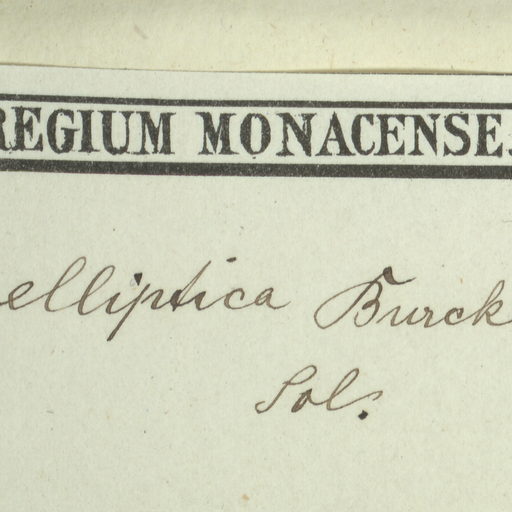 REGIUM MONACENSE.
elliptica Burck
Sol.